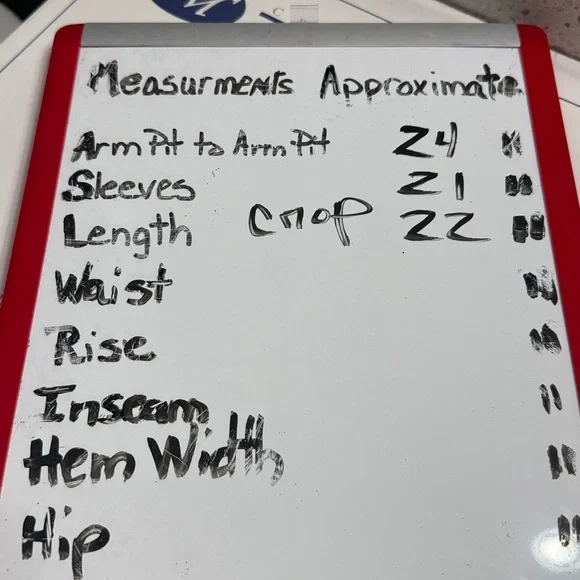 Measurments Approximate
ArmPit to ArmPit 24 "
Sleeves 21 "
Length crop 22 "
Waist "
Rise "
Inseam "
Hem Width "
Hip "